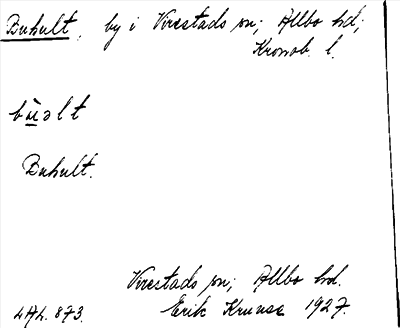 Duhult, by i Virestads sn; Allbo hd;
Kronob. l.
bùəlt
Duhult.
Virestads sn; Allbo hd.
LAL. 873. Erik Kruuse 1927.